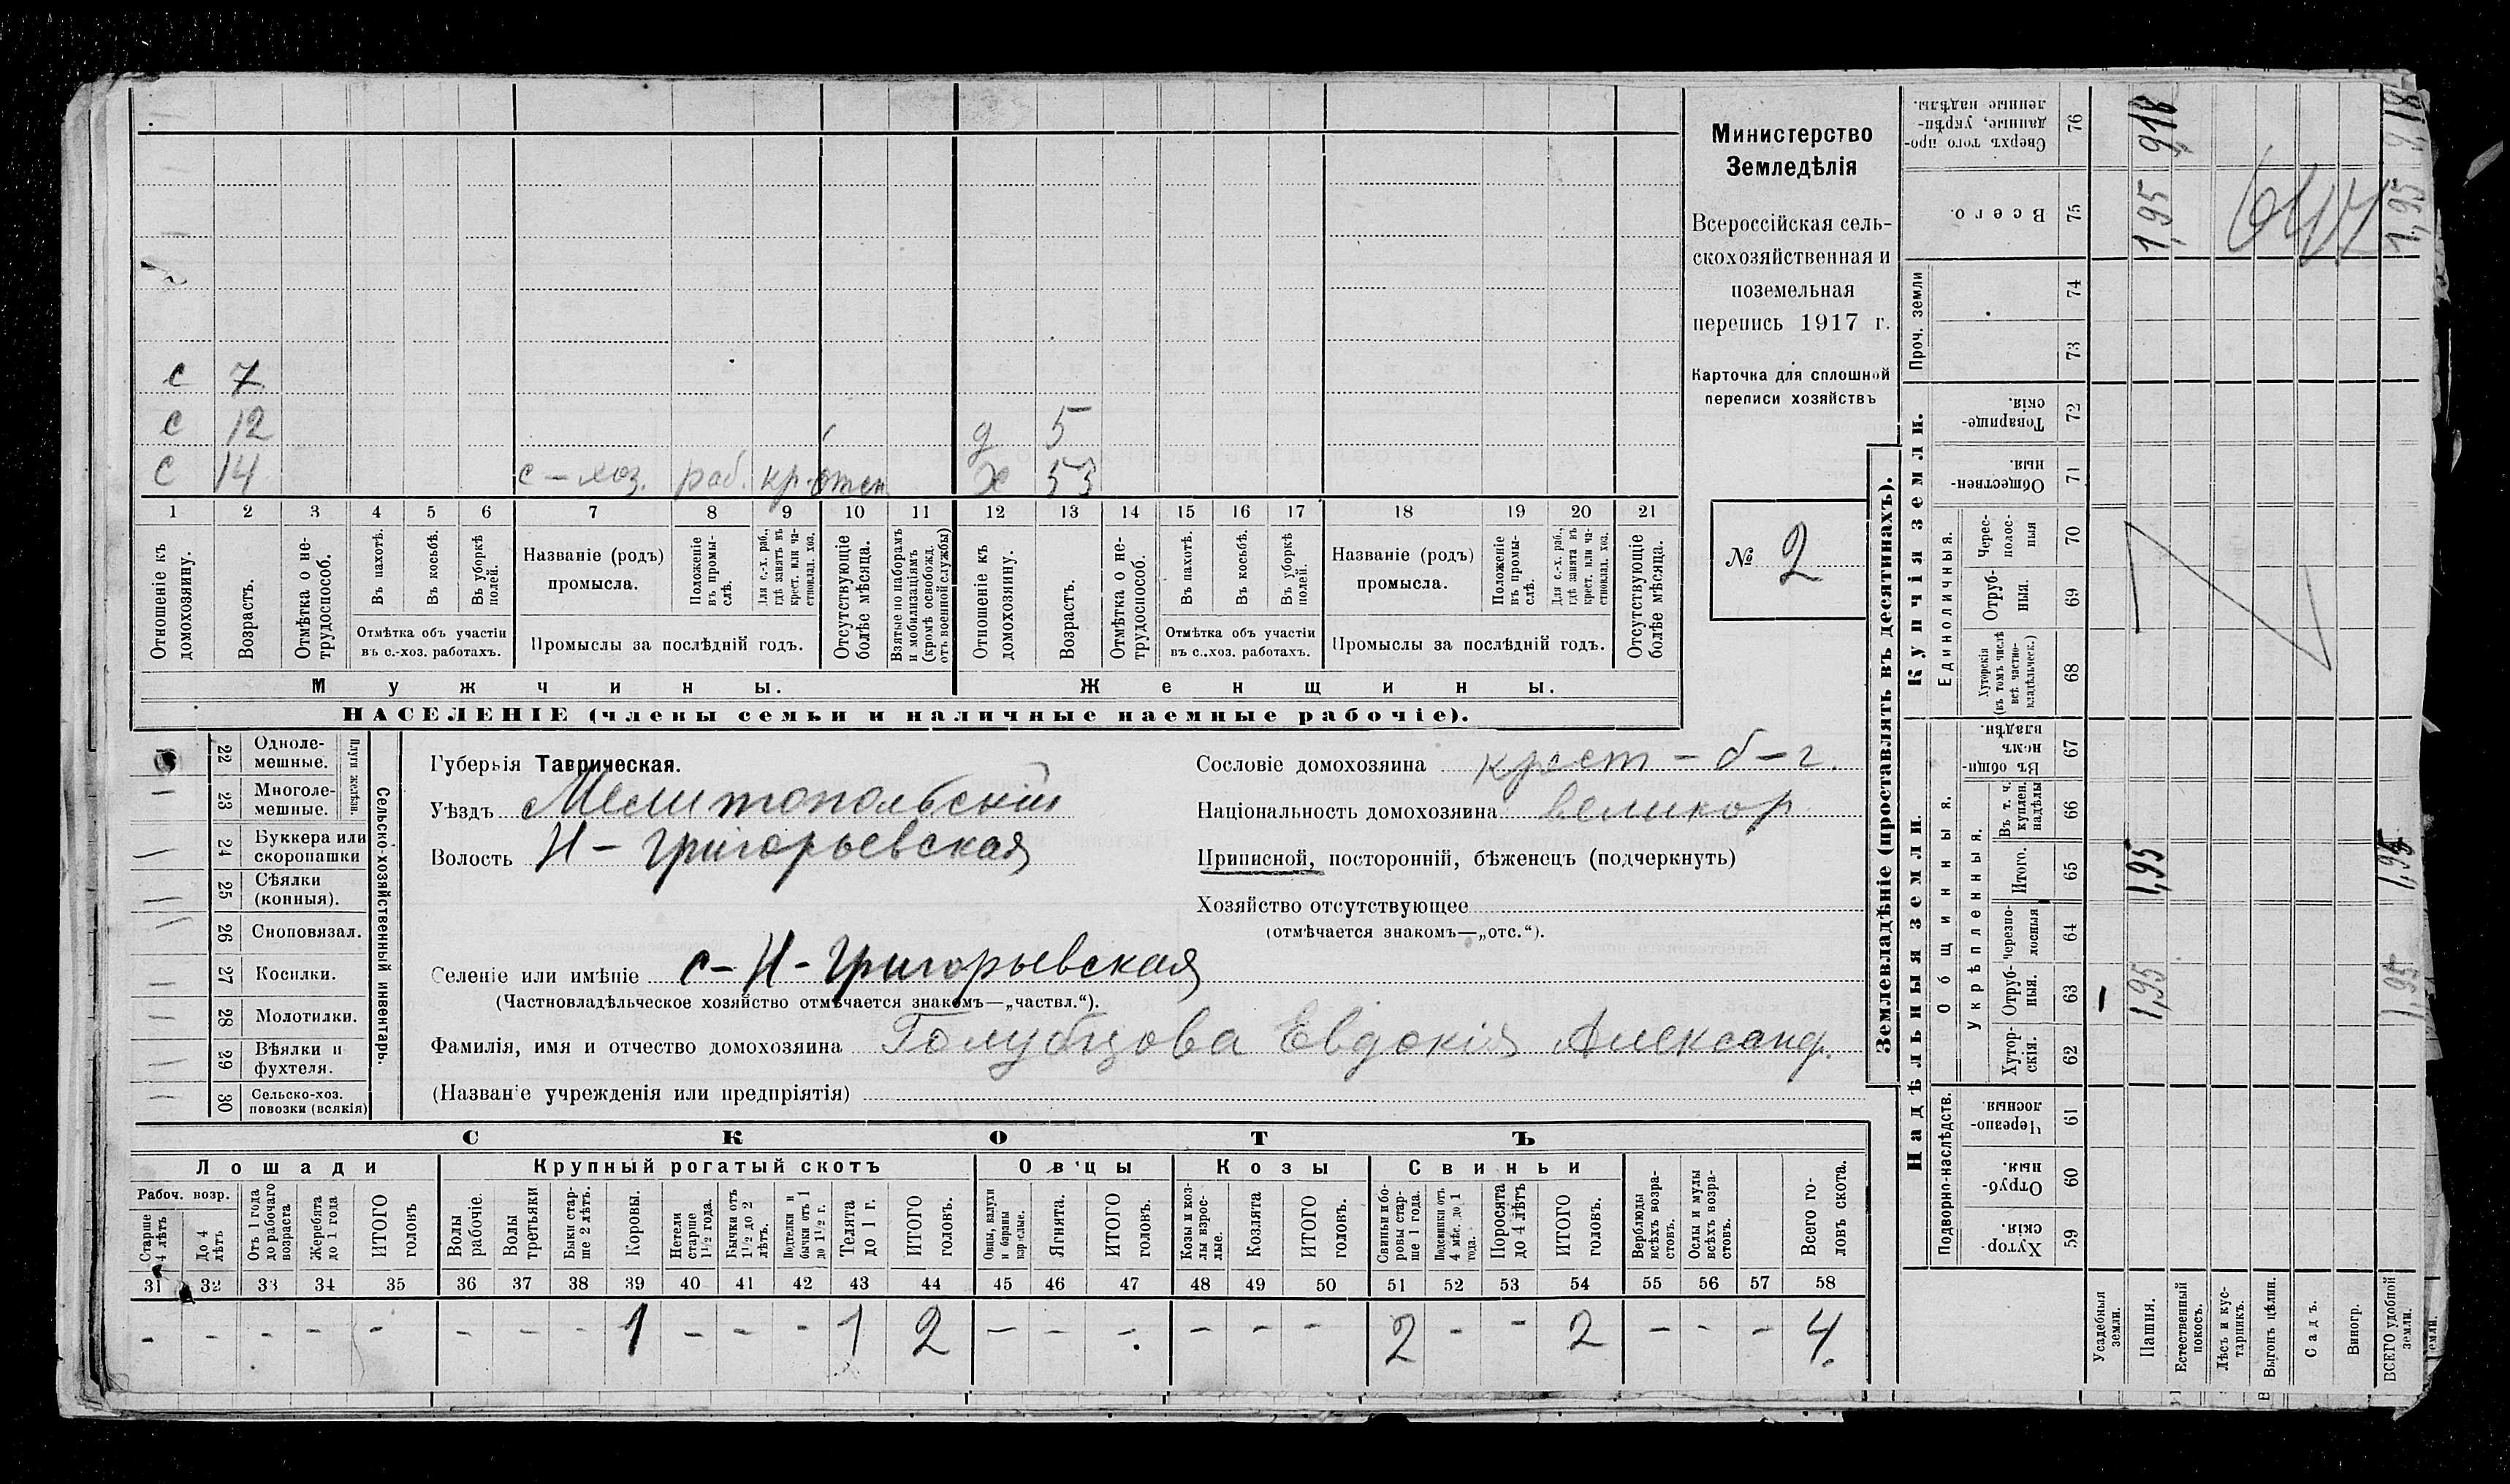 с 7
с 12 д 5
с 14 с-хоз. раб. кр. отсп х 53
1 2 3 4 5 6 7 8 9 10 11 12 13 14 15 16 17 18 19 20 21
Отношеніе къ домохозяину.
Возрастъ.
Отмѣтка о нетрудоспособ.
Въ пахотѣ.
Въ косьбѣ.
Въ уборкѣ полей.
Отмѣтка объ участіи
въ с.-хоз. работахъ.
Названіе (родъ)
промысла.
Положеніе въ промыслѣ.
Для с.-х. раб., гдѣ занятъ въ крест. или частновлад. хоз.
Промыслы за послѣдній годъ.
Отсутствующіе болѣе мѣсяца.
Взятые по наборамъ и мобилизаціямъ (кромѣ освобожд. отъ военной службы)
Отношеніе къ домохозяину.
Возрастъ.
Отмѣтка о нетрудоспособ.
Въ пахотѣ.
Въ косьбѣ.
Въ уборкѣ полей.
Отмѣтка объ участіи
въ с.-хоз. работахъ.
Названіе (родъ)
промысла.
Положеніе въ промыслѣ.
Для с.-х. раб., гдѣ занята въ крест. или частновлад. хоз.
Промыслы за послѣдній годъ.
Отсутствующіе болѣе мѣсяца.
Мужчины. Женщины.
НАСЕЛЕНІЕ (члены семьи и наличные наемные рабочіе).
Министерство
Земледѣлія
Всероссійская сель-
скохозяйственная и
поземельная
перепись 1917 г.
Карточка для сплошной
переписи хозяйствъ
№ 2
Сельско-хозяйственный инвентарь.
Плуги желѣзн.
22 Одноле-
мешные.
23 Многоле-
мешные.
24 Буккера или
скоропашки
25 Сѣялки
(конныя).
26 Сноповязал.
27 Косилки.
28 Молотилки.
29 Вѣялки и
фухтеля.
30 Сельско-хоз.
повозки (всякія)
Губернія Таврическая.
Уѣздъ Мелитопольскій
Волость Н-Григорьевская
Селеніе или имѣніе с-Н-Григорьевская
(Частновладѣльческое хозяйство отмѣчается знакомъ—„частвл.“).
Фамилія, имя и отчество домохозяина Голубцова Евдокія Александ.
(Названіе учрежденія или предпріятія)
Сословіе домохозяина крест-б-г.
Національность домохозяина великор
Приписной, посторонній, бѣженецъ (подчеркнуть)
Хозяйство отсутствующее
(отмѣчается знакомъ—„отс.“).
СКОТЪ
Лошади Крупный рогатый скотъ Овцы Козы Свиньи
Рабоч. возр.
Старше 4 лѣтъ
До 4 лѣтъ
Отъ 1 года до рабочаго возраста
Жеребята до 1 года
ИТОГО головъ
Волы рабочіе.
Волы третьяки
Быки старше 2 лѣтъ.
Коровы.
Нетели старше 1½ года.
Бычки отъ 1½ до 2 лѣтъ.
Подтелки и бычки отъ 1 до 1½ г.
Телята до 1 г.
ИТОГО головъ.
Овцы, валухи и бараны взрослые.
Ягнята.
ИТОГО головъ.
Козы и козлы взрослые.
Козлята
ИТОГО головъ.
Свиньи и боровы старше 1 года.
Подсвинки отъ 4 мѣс. до 1 года.
Поросята до 4 лѣтъ
ИТОГО головъ.
Верблюды всѣхъ возрастовъ.
Ослы и мулы всѣхъ возрастовъ.
Всего головъ скота.
31 32 33 34 35 36 37 38 39 40 41 42 43 44 45 46 47 48 49 50 51 52 53 54 55 56 57 58
- - - - - - - - 1 - - - 1 2 - - - - - - 2 - - 2 - - - 4.
Землевладѣніе (проставлять въ десятинахъ).
Надѣльныя земли. Купчія земли. Проч. земли
Подворно-наслѣдств.
Общинныя.
Укрѣпленныя.
Единоличныя.
Хуторскія. 59
Отрубныя. 60
Черезполосныя. 61
Хуторскія. 62
Отрубныя. 63 - 1,95 1,95
Черезполосныя 64
Итого. 65 1,95 1,95
Въ т. ч. куплен. надѣлы 66
Въ общинномъ владѣн. 67
Хуторскія (въ томъ числѣ всѣ частновладѣльческ.) 68
Отрубныя. 69
Чересполосныя 70
Общественныя. 71
Товарищескія. 72
73
74
Всего. 75 1,95 1,95
Сверхъ того проданные, укрѣпленные надѣлы. 76 9,18 9,18
Усадебныя земли.
Пашня.
Естественный покосъ.
Лѣсъ и кустарникъ.
Выгонъ цѣлин.
Садъ.
Виногр.
ВСЕГО удобной земли.